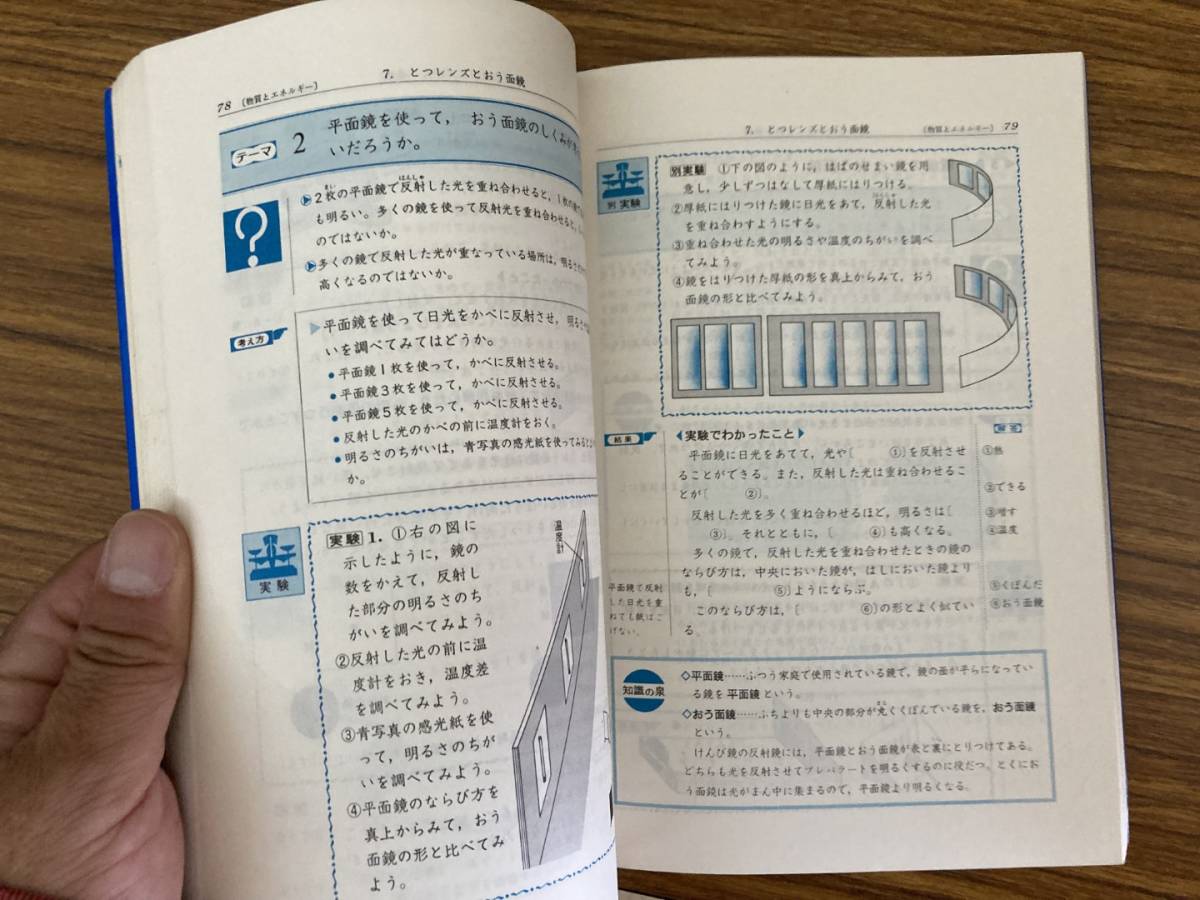 78 〔物質とエネルギー〕
7. とつレンズとおう面鏡
テーマ 2 平面鏡を使って， おう面鏡のしくみが
いだろうか。
?
2枚の平面鏡で反射した光を重ね合わせると，1枚の
まい はんしゃ
も明るい。多くの鏡を使って反射光を重ね合わせると，
のではないか。
多くの鏡で反射した光が重なっている場所は，明るさ
高くなるのではないか。
考え方
平面鏡を使って日光をかべに反射させ， 明るさ
いを調べてみてはどうか。
● 平面鏡1枚を使って，かべに反射させる。
● 平面鏡3枚を使って，かべに反射させる。
● 平面鏡5枚を使って，かべに反射させる。
● 反射した光のかべの前に温度計をおく。
● 明るさのちがいは，青写真の感光紙を使ってみると
か。
実験
実験1. ①右の図に
示したように，鏡の
数をかえて，反射し
た部分の明るさのち
がいを調べてみよう。
②反射した光の前に温
度計をおき，温度差
を調べてみよう。
③青写真の感光紙を使
って，明るさのちが
いを調べてみよう。
④平面鏡のならび方を
真上からみて，おう
面鏡の形と比べてみ
よう。
温度計
7. とつレンズとおう面鏡
〔物質とエネルギー〕 79
別実験
別実験 ①下の図のように，はばのせまい鏡を用
意し，少しずつはなして厚紙にはりつける。
②厚紙にはりつけた鏡に日光をあて，反射した光
はんしゃ
を重ね合わすようにする。
③重ね合わせた光の明るさや温度のちがいを調べ
てみよう。
④鏡をはりつけた厚紙の形を真上からみて，おう
面鏡の形と比べてみよう。
結果
実験でわかったこと
平面鏡に日光をあてて，光や〔 ①〕を反射させ
ることができる。また，反射した光は重ね合わせるこ
とが〔 ②〕。
反射した光を多く重ね合わせるほど，明るさは〔
③〕。それとともに，〔 ④〕も高くなる。
多くの鏡で，反射した光を重ね合わせたときの鏡の
ならび方は，中央においた鏡が，はしにおいた鏡より
も，〔 ⑤〕ようにならぶ。
このならび方は，〔 ⑥〕の形とよく似てい
る。
平面鏡で反射
した日光を重
ねても紙はこ
げない。
①熱
②できる
③増す
④温度
⑤くぼんだ
⑥おう面鏡
知識の泉
◇平面鏡……ふつう家庭で使用されている鏡で，鏡の面が平らになってい
る鏡を 平面鏡 という。
◇おう面鏡……ふちよりも中央の部分が丸くくぼんでいる鏡を，おう面鏡
まる
という。
けんび鏡の反射鏡には，平面鏡とおう面鏡が表と裏にとりつけてある。
どちらも光を反射させてプレパラートを明るくするのに役だつ。とくにお
う面鏡は光がまん中に集まるので，平面鏡より明るくなる。